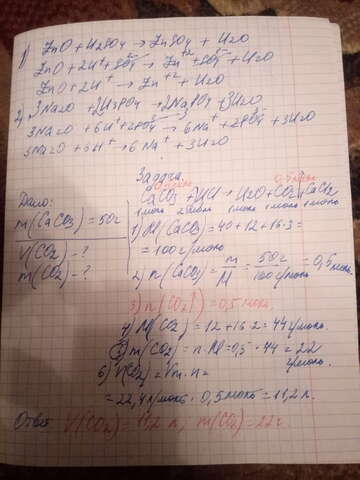 1) ZnO + H2SO4 → ZnSO4 + H2O
ZnO + 2H⁺ + SO4²⁻ → Zn⁺² + SO4²⁻ + H2O
ZnO + 2H⁺ → Zn⁺² + H2O
2) 3Na2O + 2H3PO4 → 2Na3PO4 + 3H2O
3Na2O + 6H⁺ + 2PO4³⁻ → 6Na⁺ + 2PO4³⁻ + 3H2O
3Na2O + 6H⁺ → 6Na⁺ + 3H2O
Задача
0,5моль 0,5моль
Дано: CaCO3 + 2HCl → H2O + CO2↑ + CaCl2
1 моль 2 моль 1 моль 1 моль 1 моль
m(CaCO3) = 50г
1) M(CaCO3) = 40 + 12 + 16·3 =
= 100 г/моль
V(CO2) - ?
m(CO2) - ?
2) n(CaCO3) = m/M = 50г/100г/моль = 0,5 моль
3) n(CO2↑) = 0,5 моль.
4) M(CO2) = 12 + 16·2 = 44 г/моль.
5) m(CO2) = n·M = 0,5 · 44 = 22
г/моль.
6) V(CO2) = Vm · n =
= 22,4 л/моль · 0,5 моль = 11,2 л.
Ответ V(CO2) = 11,2 л, m(CO2) = 22г.